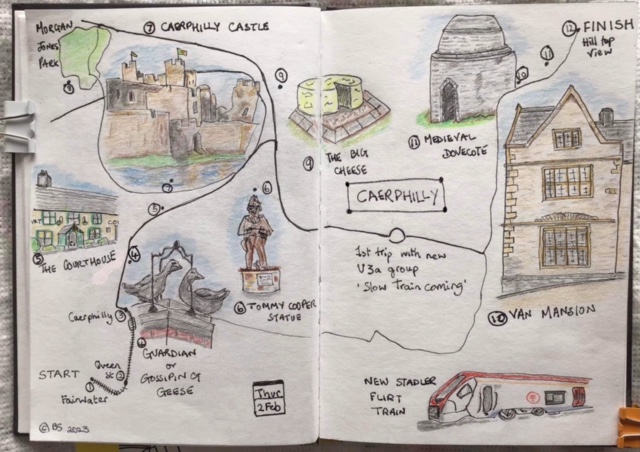 MORGAN
JONES
PARK
8
7 CAERPHILLY CASTLE
9
9 THE BIG
CHEESE
11 MEDIEVAL
DOVECOTE
12 FINISH
Hill top
view
11
10
7
5
6
5 THE COURTHOUSE
4
6 TOMMY COOPER
STATUE
CAERPHILLY
1st trip with new
V3a group
'Slow train coming'
10 VAN MANSION
Caerphilly 3
4 GUARDIAN
or
GOSSIPING
GEESE
Queen
St 2
START
1
Fairwater
Thur
2 Feb
NEW STADLER
FLIRT
TRAIN
© BS 2023